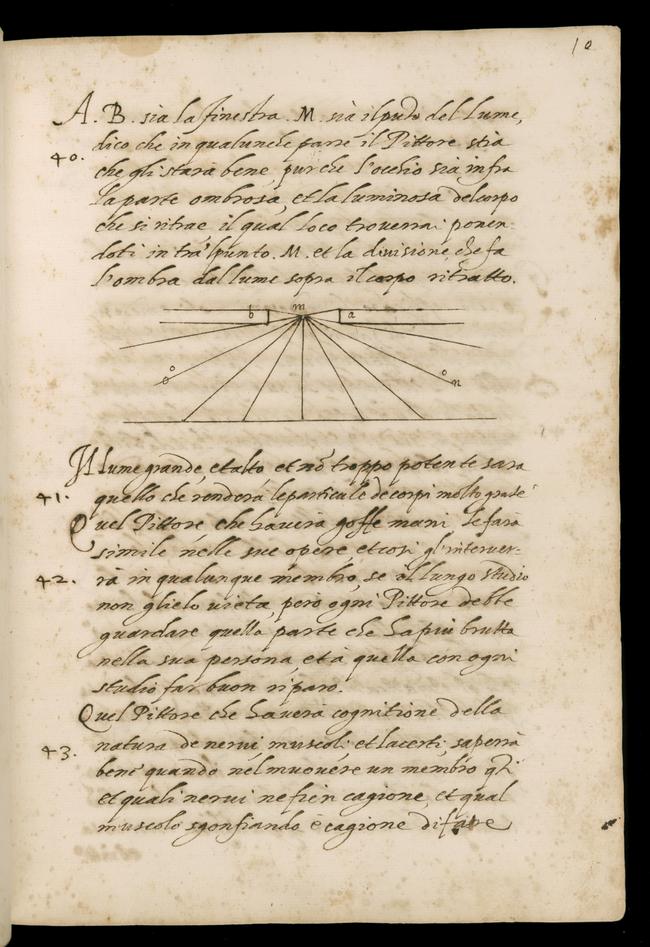 10
A. B. sia la finestra. M. sià il puto del lume,
dico che in qualunche parte il Pittore stia
40. che gli starà bene, pur che l'occhio sia infra
la parte ombrosa, et la luminosa del corpo
che si ritrae, il qual loco trouerrai ponen-
doti in tra'l punto. M. et la diuisione, che fa
l'ombra dal lume sopra il corpo ritratto.
b m a
o n
Il lume grande, et alto et nō troppo potente sara
41. quello che renderà le particule de corpi molto grate
Quel Pittore che hauerà goffe mani le farà
simile nelle sue opere et così gl'interuer-
42. rà in qualunque membro, se il lungo studio
non glielo uieta, però ogni Pittore debbe
guardare quella parte che ha più brutta
nella sua persona, et à quella con ogni
studio far buon riparo.
Quel Pittore che hauerà cognitione della
natura de nerui, muscoli, et lacerti, saperrà
43. bene quando nel muouere un membro
et quali nerui ne fien cagione, et qual
muscolo sgonfiando è cagione di fare